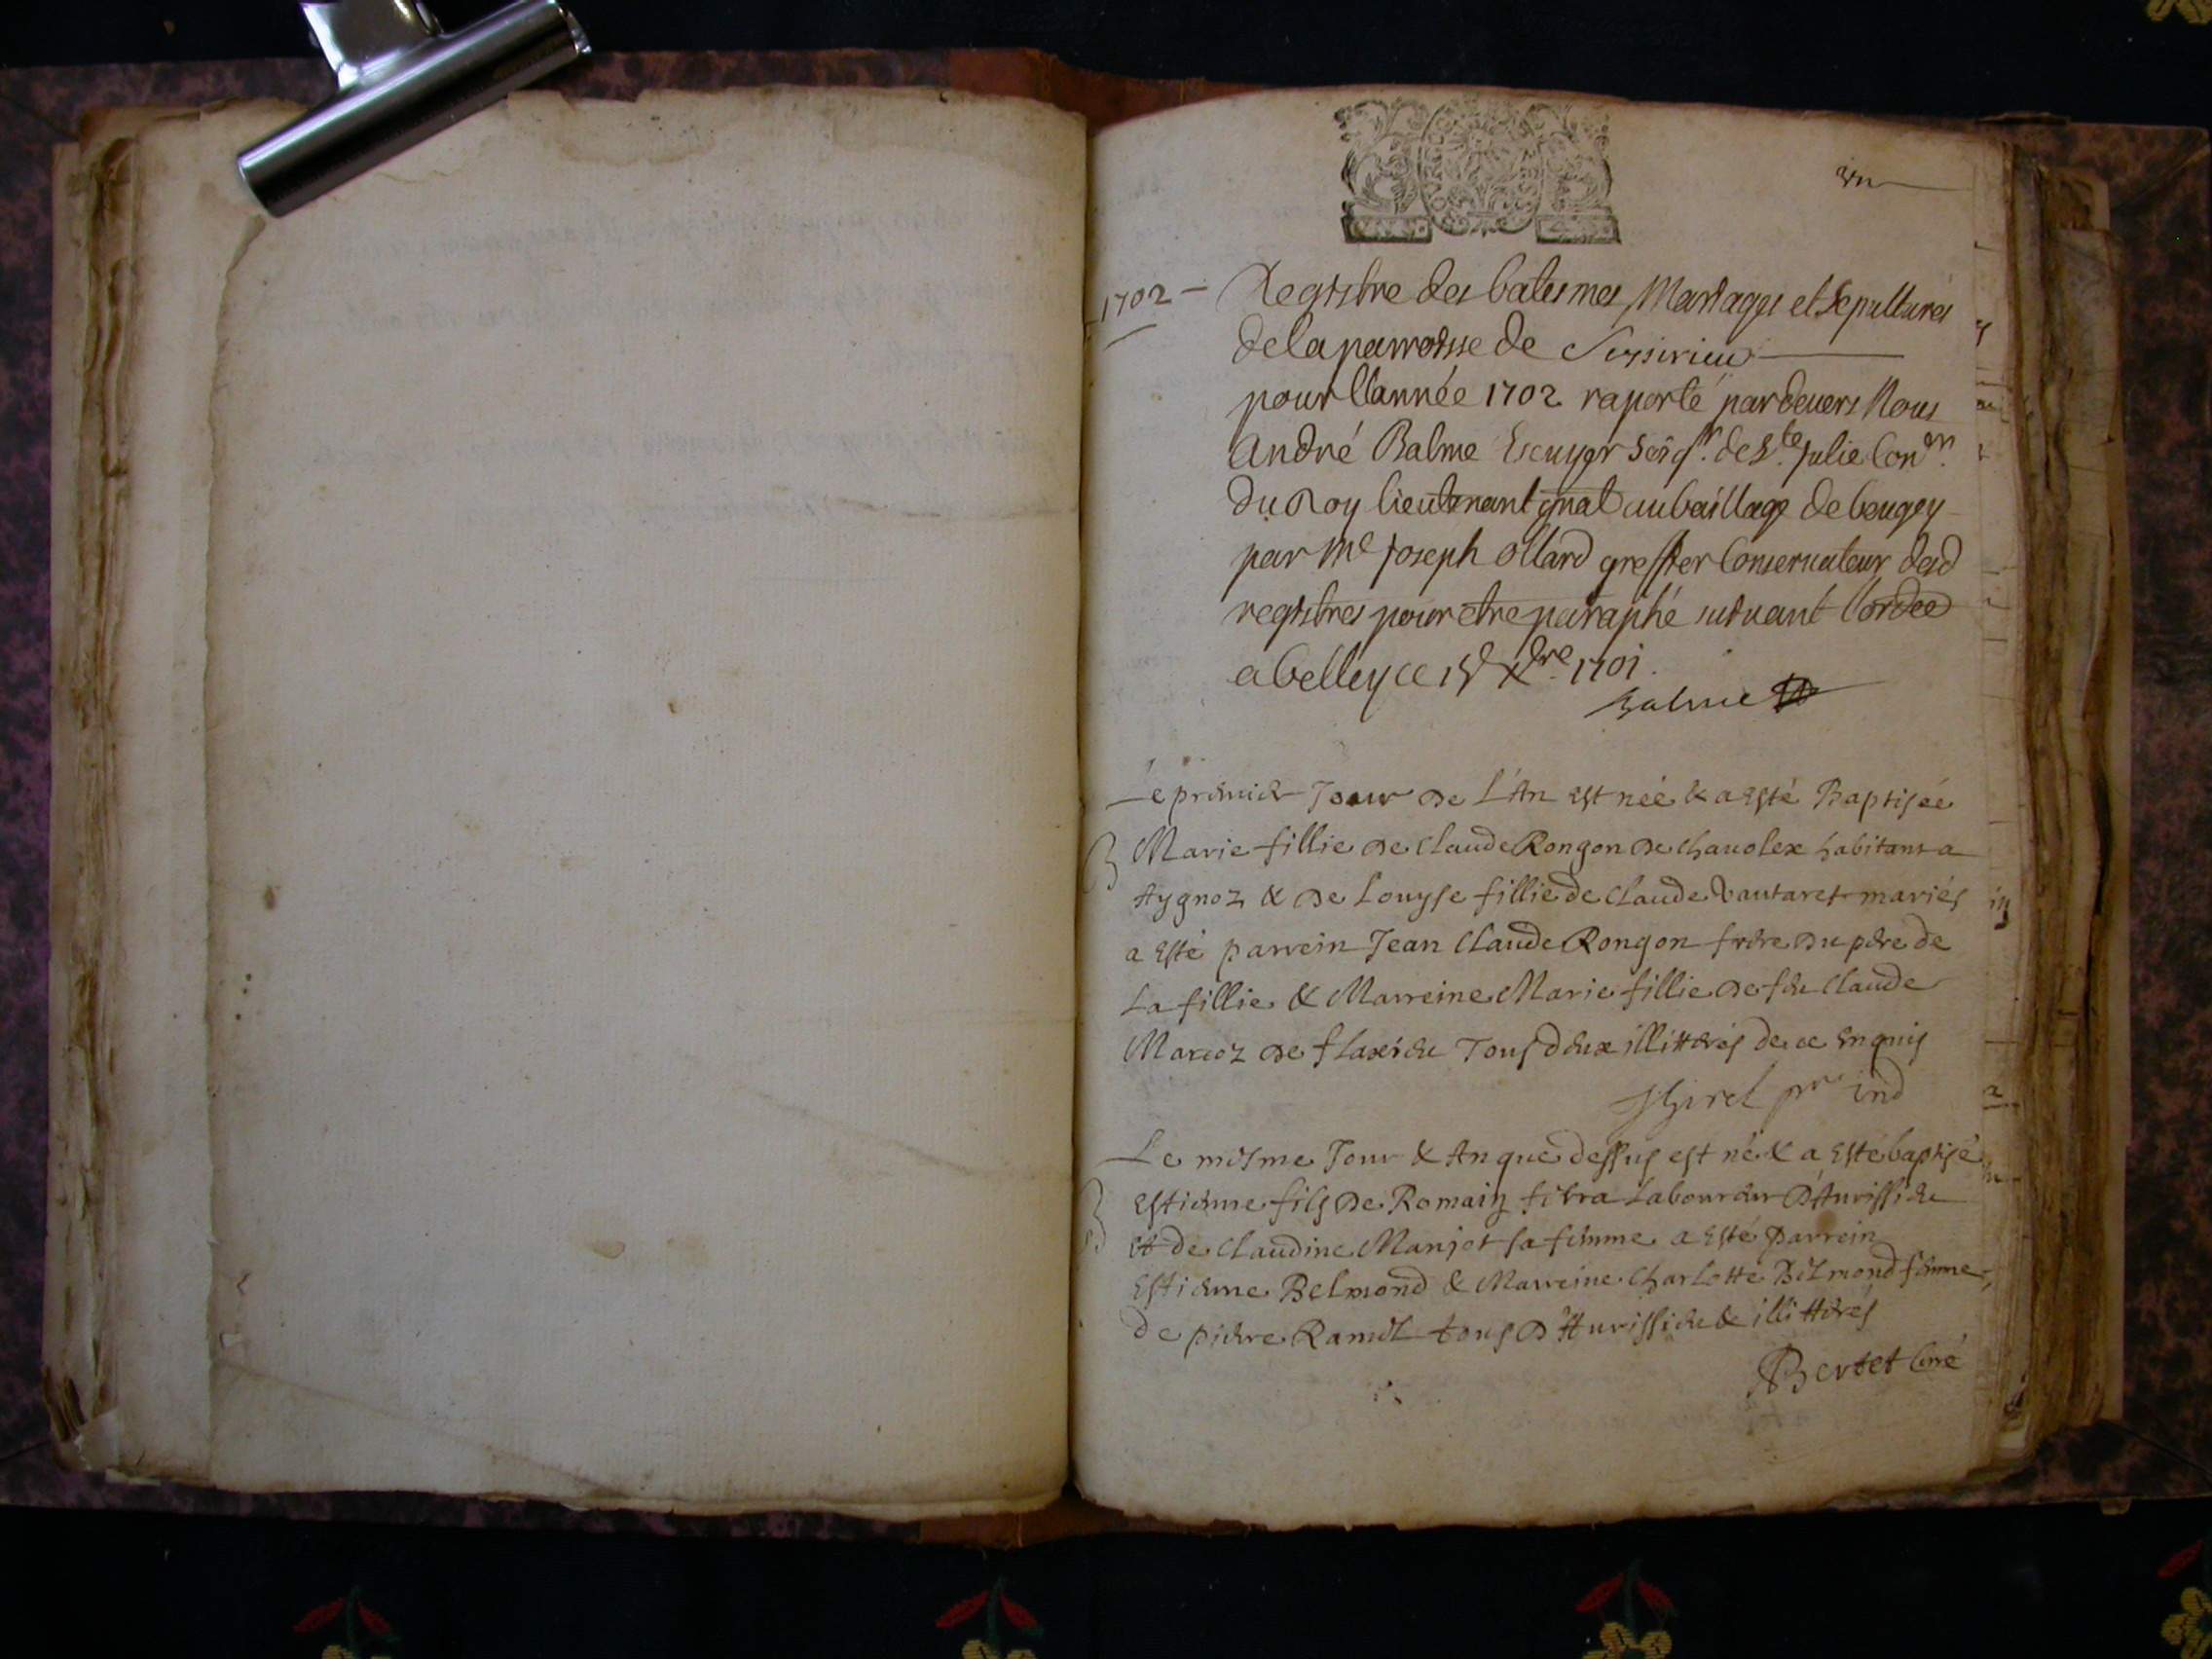 un
1702 - Registre des batesmes, Mariages et Sepultures
de la parroisse de Seyssirieu
pour l'année 1702 raporté pardevers Nous
André Balme Escuyer Seigr. de Ste. Julie Conr.
du Roy lieutenant gnal au baillage de beugey
par Me Joseph Ollard greffier Conservateur desd
registres pour etre paraphé suivant l'ordce
a belley ce 15 Xbre. 1701.
Balme
Le premier Jour de L'An est neé & a esté Baptiseé
B Marie fillie de Claude Rongon de chavolex habitant a
Aygnoz & de Louyse fillie de Claude Vautaret mariés
a esté parrein Jean Claude Rongon frere du pere de
La fillie & Marreine Marie fillie de feu Claude
Marcoz de flaxieu Tous deux illitterés de ce enquis
pre ind
Le mesme Jour & An que dessus est né & a esté baptisé
B Estienne fils de Romain fevra Laboureur D'Avrissieu
et de Claudine Manjot sa femme a esté parrein
Estienne Belmond & Marreine Charlotte Belmond femme
de pierre Ramel tous D'Avrissieu & illitterés
Bertet Curé